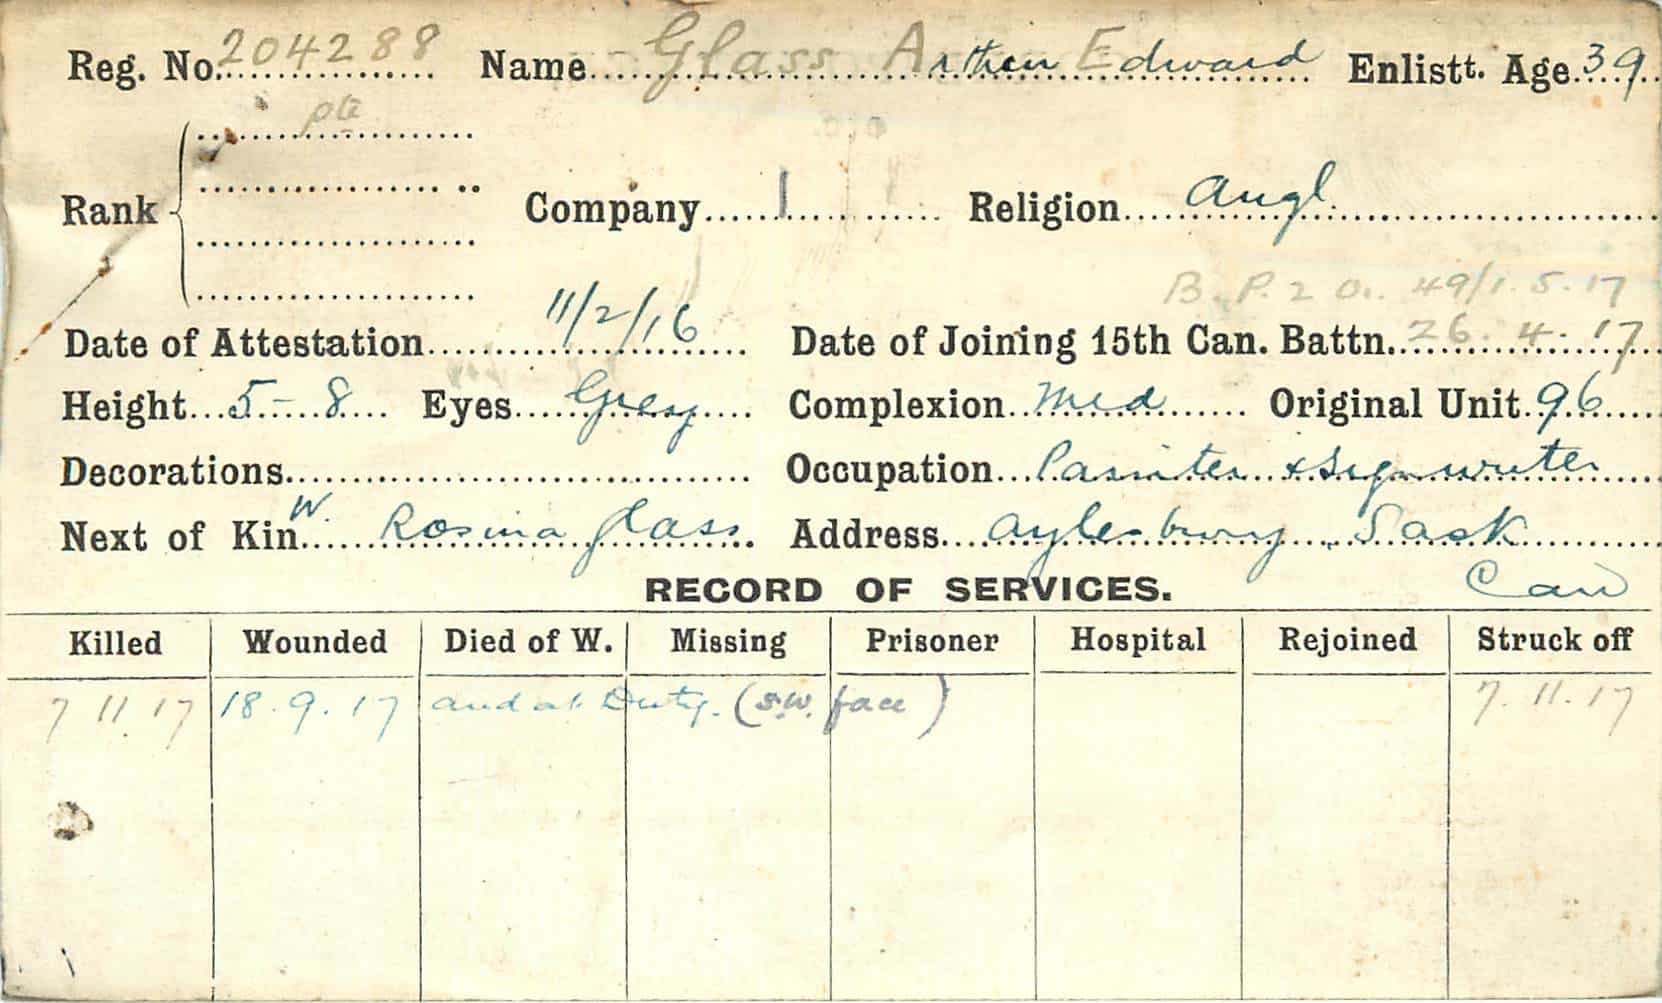 Reg. No. 204288 Name Glass Arthur Edward Enlistt. Age 39
Pte
Rank Company 1 Religion Angl.
B. P. 2 O. 49/1.5.17
Date of Attestation 11/2/16 Date of Joining 15th Can. Battn. 26.4.17
Height 5-8 Eyes Grey Complexion Med Original Unit 96
Decorations Occupation Painter & Signwriter
Next of Kin W. Rosina Glass Address Aylesbury, Sask
Can
RECORD OF SERVICES.
Killed Wounded Died of W. Missing Prisoner Hospital Rejoined Struck off
7 11 17 18.9.17 and at Duty. (S.W. face) 7.11.17